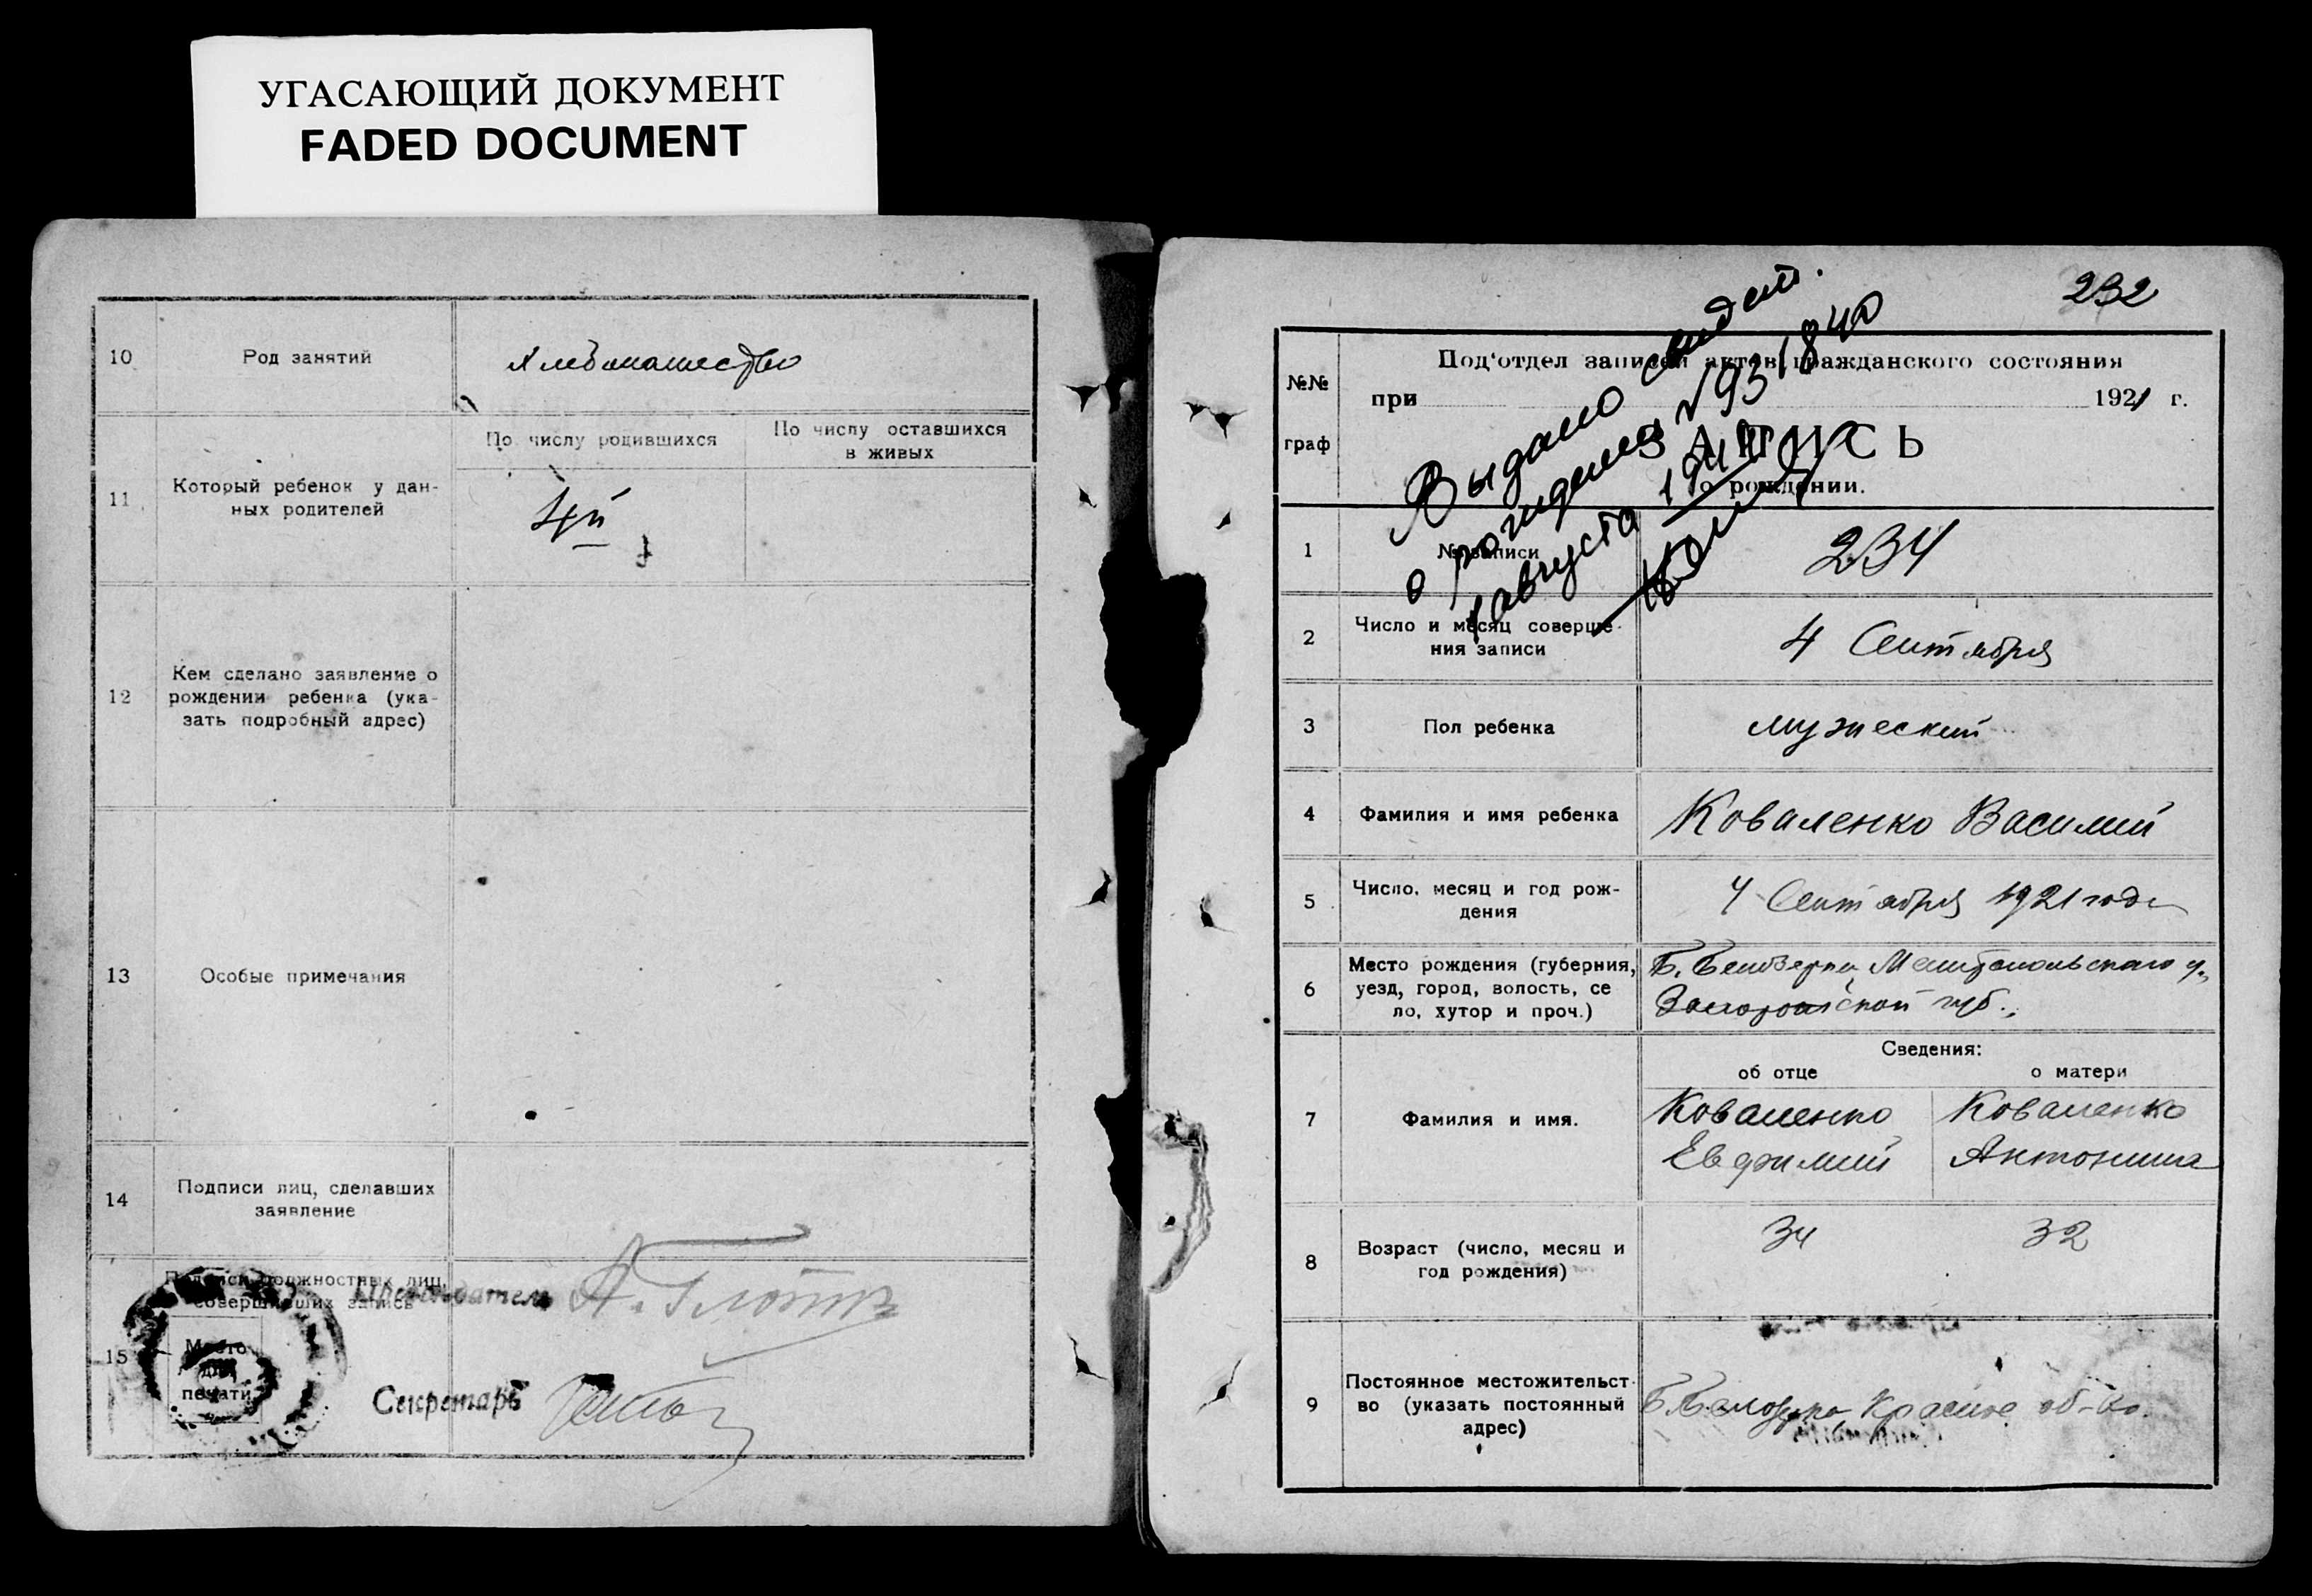 УГАСАЮЩИЙ ДОКУМЕНТ
FADED DOCUMENT
10
Род занятий
Хлебопашество
11
Который ребенок у дан-
ных родителей
По числу родившихся
По числу оставшихся
в живых
4й
12
Кем сделано заявление о
рождении ребенка (ука-
зать подробный адрес)
13
Особые примечания
14
Подписи лиц, сделавших
заявление
15
Подписи должностных лиц,
совершивших запись
Место
для
печати
Председатель
Секретарь
232
Выдано свидет.
о рождении №931840
1 августа 1940
№№
граф
Под'отдел записей актов гражданского состояния
при 1921 г.
ЗАПИСЬ
о рождении.
1
№ записи
234
2
Число и месяц соверше-
ния записи
4 Сентября
3
Пол ребенка
мужеский
4
Фамилия и имя ребенка
Коваленко Василий
5
Число, месяц и год рож-
дения
4 Сентября 1921 года
6
Место рождения (губерния,
уезд, город, волость, се
ло, хутор и проч.)
Б. Белозерка Мелитопольскаго у.,
Запорожской губ.
Сведения:
об отце
о матери
7
Фамилия и имя.
Коваленко
Евфимий
Коваленко
Антонина
8
Возраст (число, месяц и
год рождения)
34
32
9
Постоянное местожительст-
во (указать постоянный
адрес)
Б. Белозерка Красное об-во.